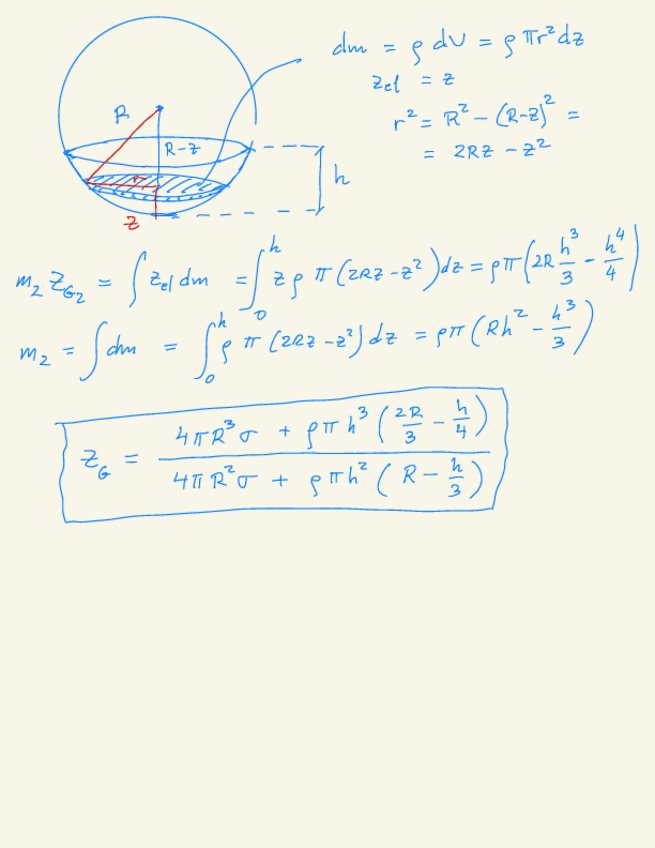 dm = ρ dV = ρ πr² dz
z_el = z
r² = R² − (R−z)² =
= 2Rz − z²
R
R−z
r
h
z
m₂ z_G₂ = ∫ z_el dm = ∫₀ʰ z ρ π (2Rz − z²) dz = ρπ (2R h³/3 − h⁴/4)
m₂ = ∫ dm = ∫₀ʰ ρ π (2Rz − z²) dz = ρπ (Rh² − h³/3)
z_G = (4πR³σ + ρπh³ (2R/3 − h/4)) / (4πR²σ + ρπh² (R − h/3))